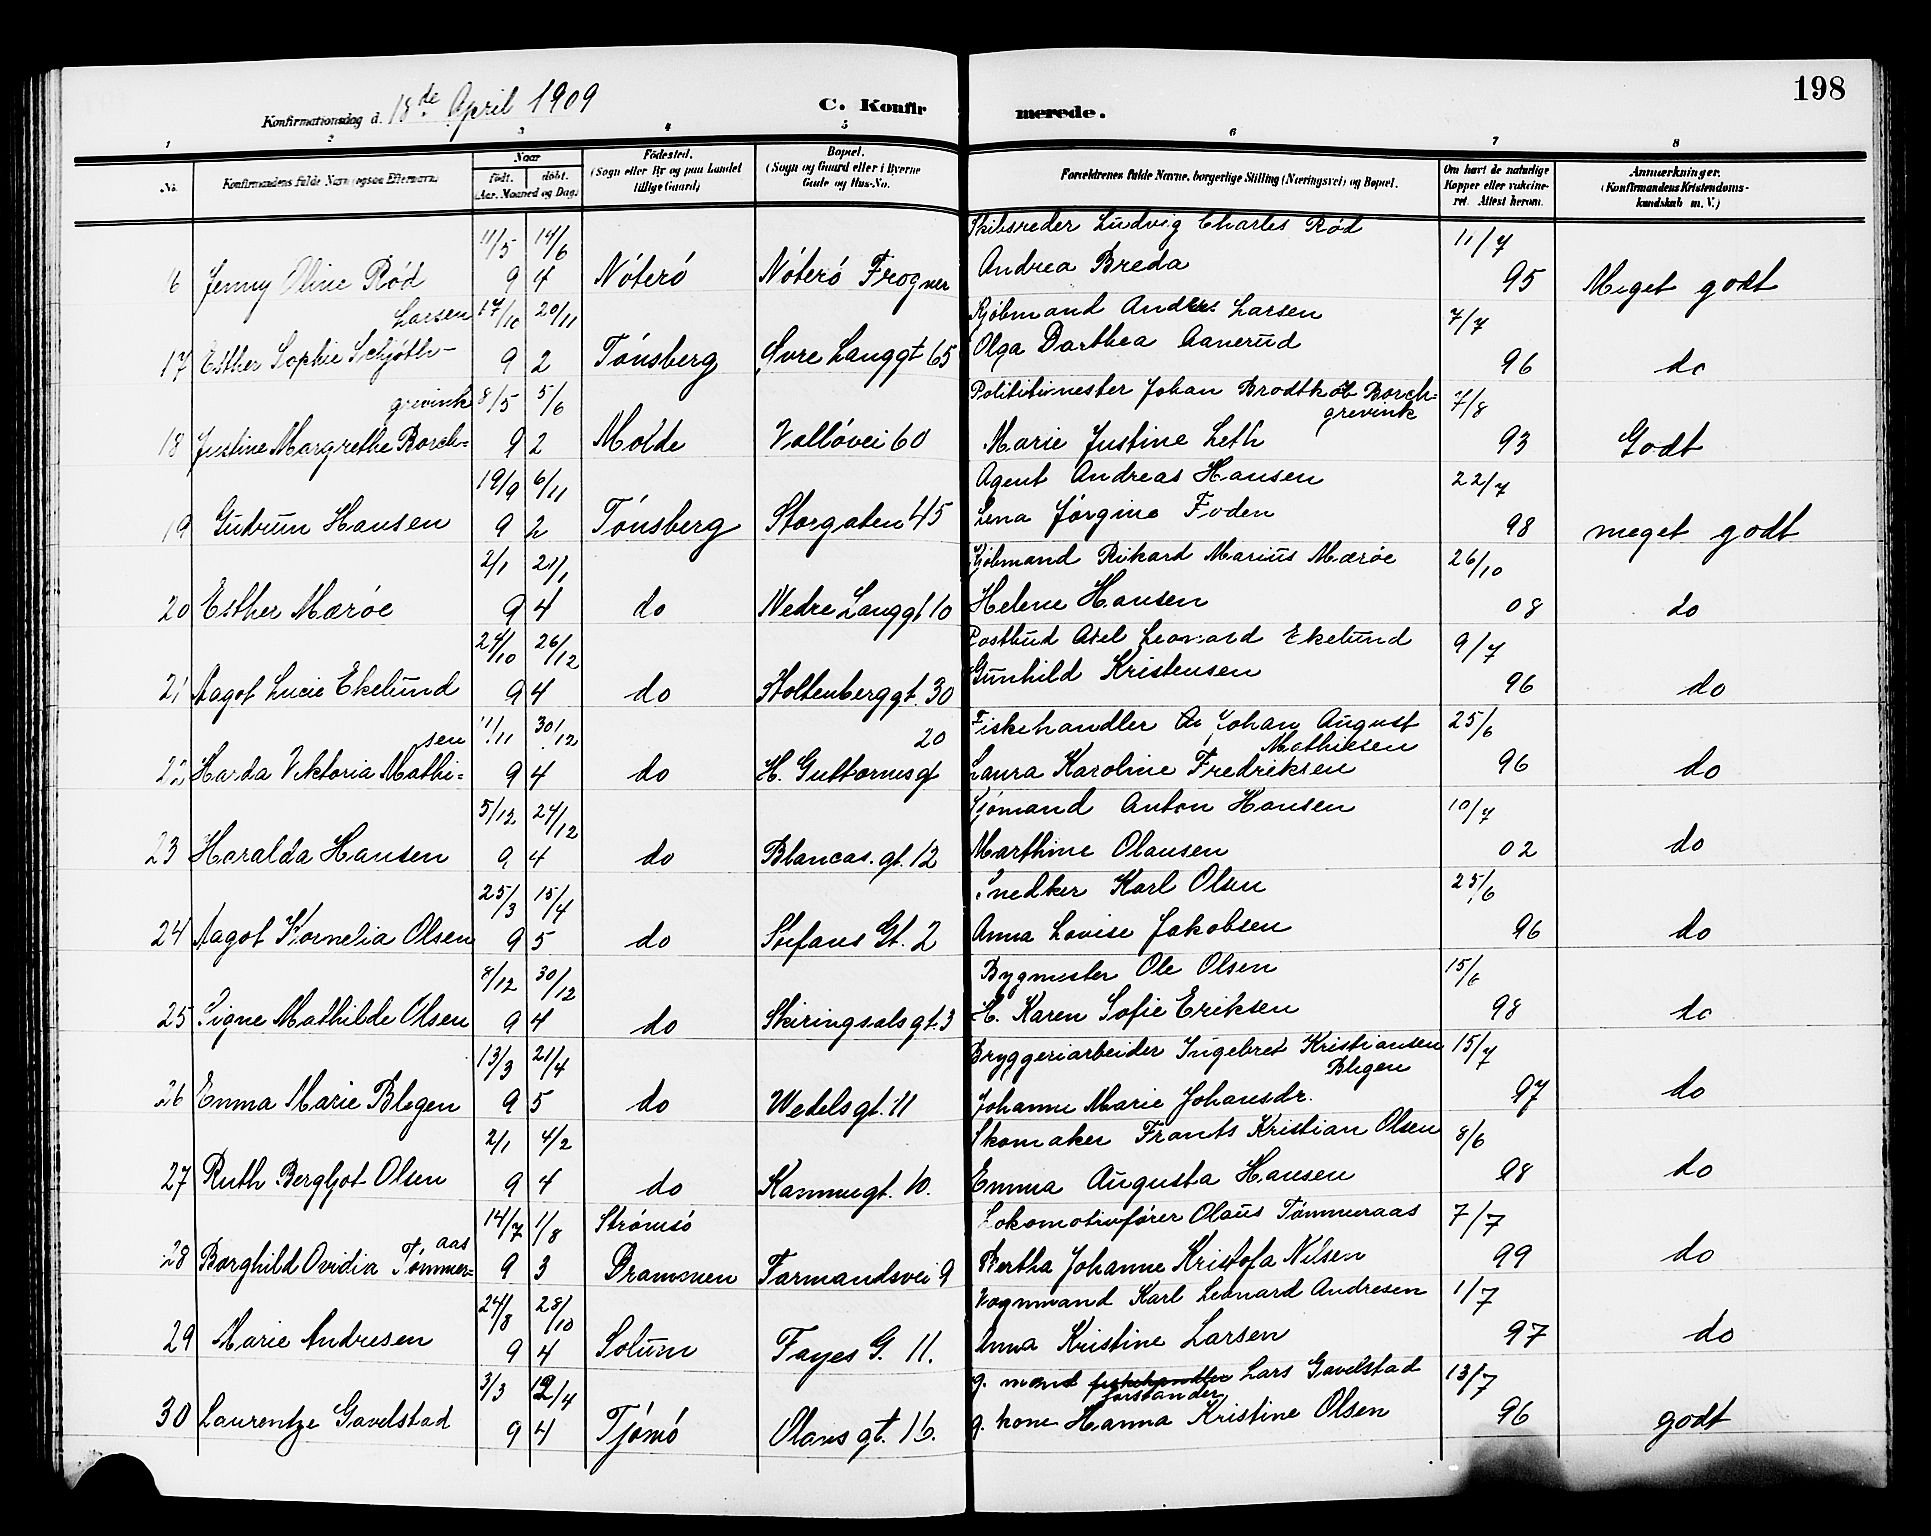 198
Konfirmationsdag d. 18de April 1909
C. Konfirmerede.
1 2 3 4 5 6 7 8
No. Konfirmandens fulde Navn (ogsaa Efternavn) Naar født. døbt. (Aar, Maaned og Dag) Fødested. (Sogn eller By og paa Landet tillige Gaard) Bopæl. (Sogn og Gaard eller i Byerne Gade og Hus-No. Forældrenes fulde Navne, borgerlige Stilling (Næringsvei) og Bopæl. Om havt de naturlige Kopper eller vakcineret. Attest herom. Anmærkninger. (Konfirmandens Kristendomskundskab m. V.)
11/5 14/6 Skibsreder Ludvig Charles Rød 11/7
6 Jenny Oline Rød 9 4 Nöterö Nöterö Frogner Andrea Breda 95 Meget godt
Larsen 17/10 20/11 Kjöbmand Anders Larsen 7/7
17 Esther Sophie Schjöth- 9 2 Tönsberg Øvre Langgt 65 Olga Dorthea Aanerud 96 do
grevink 8/5 5/6 Politimester Johan Brodtkob Borchgrevink 7/8
18 Justine Margrethe Borch- 9 2 Molde Vallövei 60 Marie Justine Leth 93 Godt
19/9 6/11 Agent Andreas Hansen 22/7
19 Gudrun Hansen 9 2 Tönsberg Storgaten 45 Lena Jörgine Foden 98 meget godt
2/1 21/1 Kjöbmand Rikard Marius Mæröe 26/10
20 Esther Mæröe 9 4 do Nedre Langgt 10 Helene Hansen 08 do
24/10 26/12 Postbud Axel Leonard Ekelund 9/7
21 Aagot Lucie Ekelund 9 4 do Stoltenberggt. 30 Gunhild Kristensen 96 do
sen 11/11 30/12 20 Fiskehandler Johan August Mathiesen 25/6
22 Harda Viktoria Mathi- 9 4 do H. Guttormsgt Laura Karoline Fredriksen 96 do
5/12 24/12 Sjömand Anton Hansen 10/7
23 Haralda Hansen 9 4 do Blancas. gt. 12 Marthine Olausen 02 do
25/3 15/4 Snedker Karl Olsen 25/6
24 Aagot Kornelia Olsen 9 5 do Stefans Gt. 2 Anna Lovise Jakobsen 96 do
8/12 30/12 Bygmester Ole Olsen 15/6
25 Signe Mathilde Olsen 9 4 do Skiringsalsgt. 3 H. Karen Sofie Eriksen 98 do
13/3 21/4 Bryggeriarbeider Ingebret Kristiansen Blegen 15/7
26 Emma Marie Blegen 9 5 do Wedelsgt. 11 Johanne Marie Johansdr. 97 do
2/1 4/2 Skomaker Frants Kristian Olsen 8/6
27 Ruth Bergljot Olsen 9 4 do Kammegt. 10. Emma Augusta Hansen 98 do
14/7 1/8 Strömsö Lokomotivförer Olaus Tömmeraas 7/7
28 Borghild Ovidia Tömmeraas 9 3 Drammen Farmandsvei 9 Bertha Johanne Kristofa Nilsen 99 do
24/8 28/10 Vognmand Karl Leonard Andresen 1/7
29 Marie Andresen 9 4 Solum Fayes G. 11. Anna Kristine Larsen 97 do
3/3 12/4 g. mand fiskehandler forstander Lars Gavelstad 13/7
30 Laurentze Gavelstad 9 4 Tjömö Olavs gt. 16. g. kone Hanna Kristine Olsen 96 godt